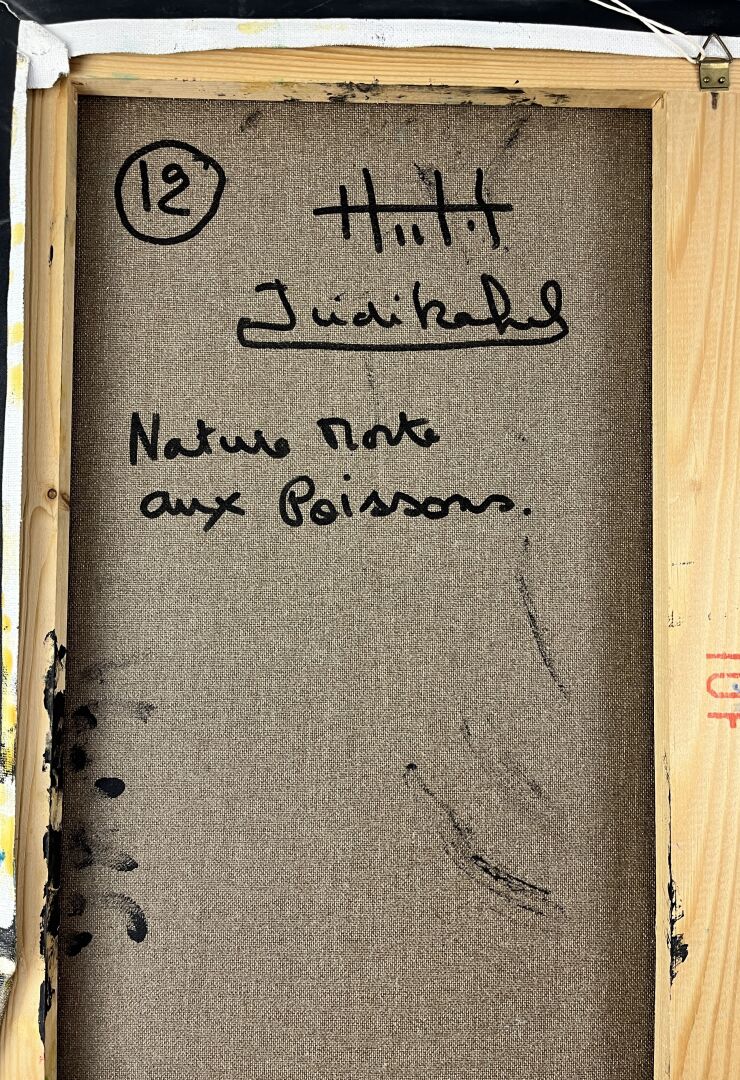 12
Jüdikahel
Nature Morte
aux Poissons.